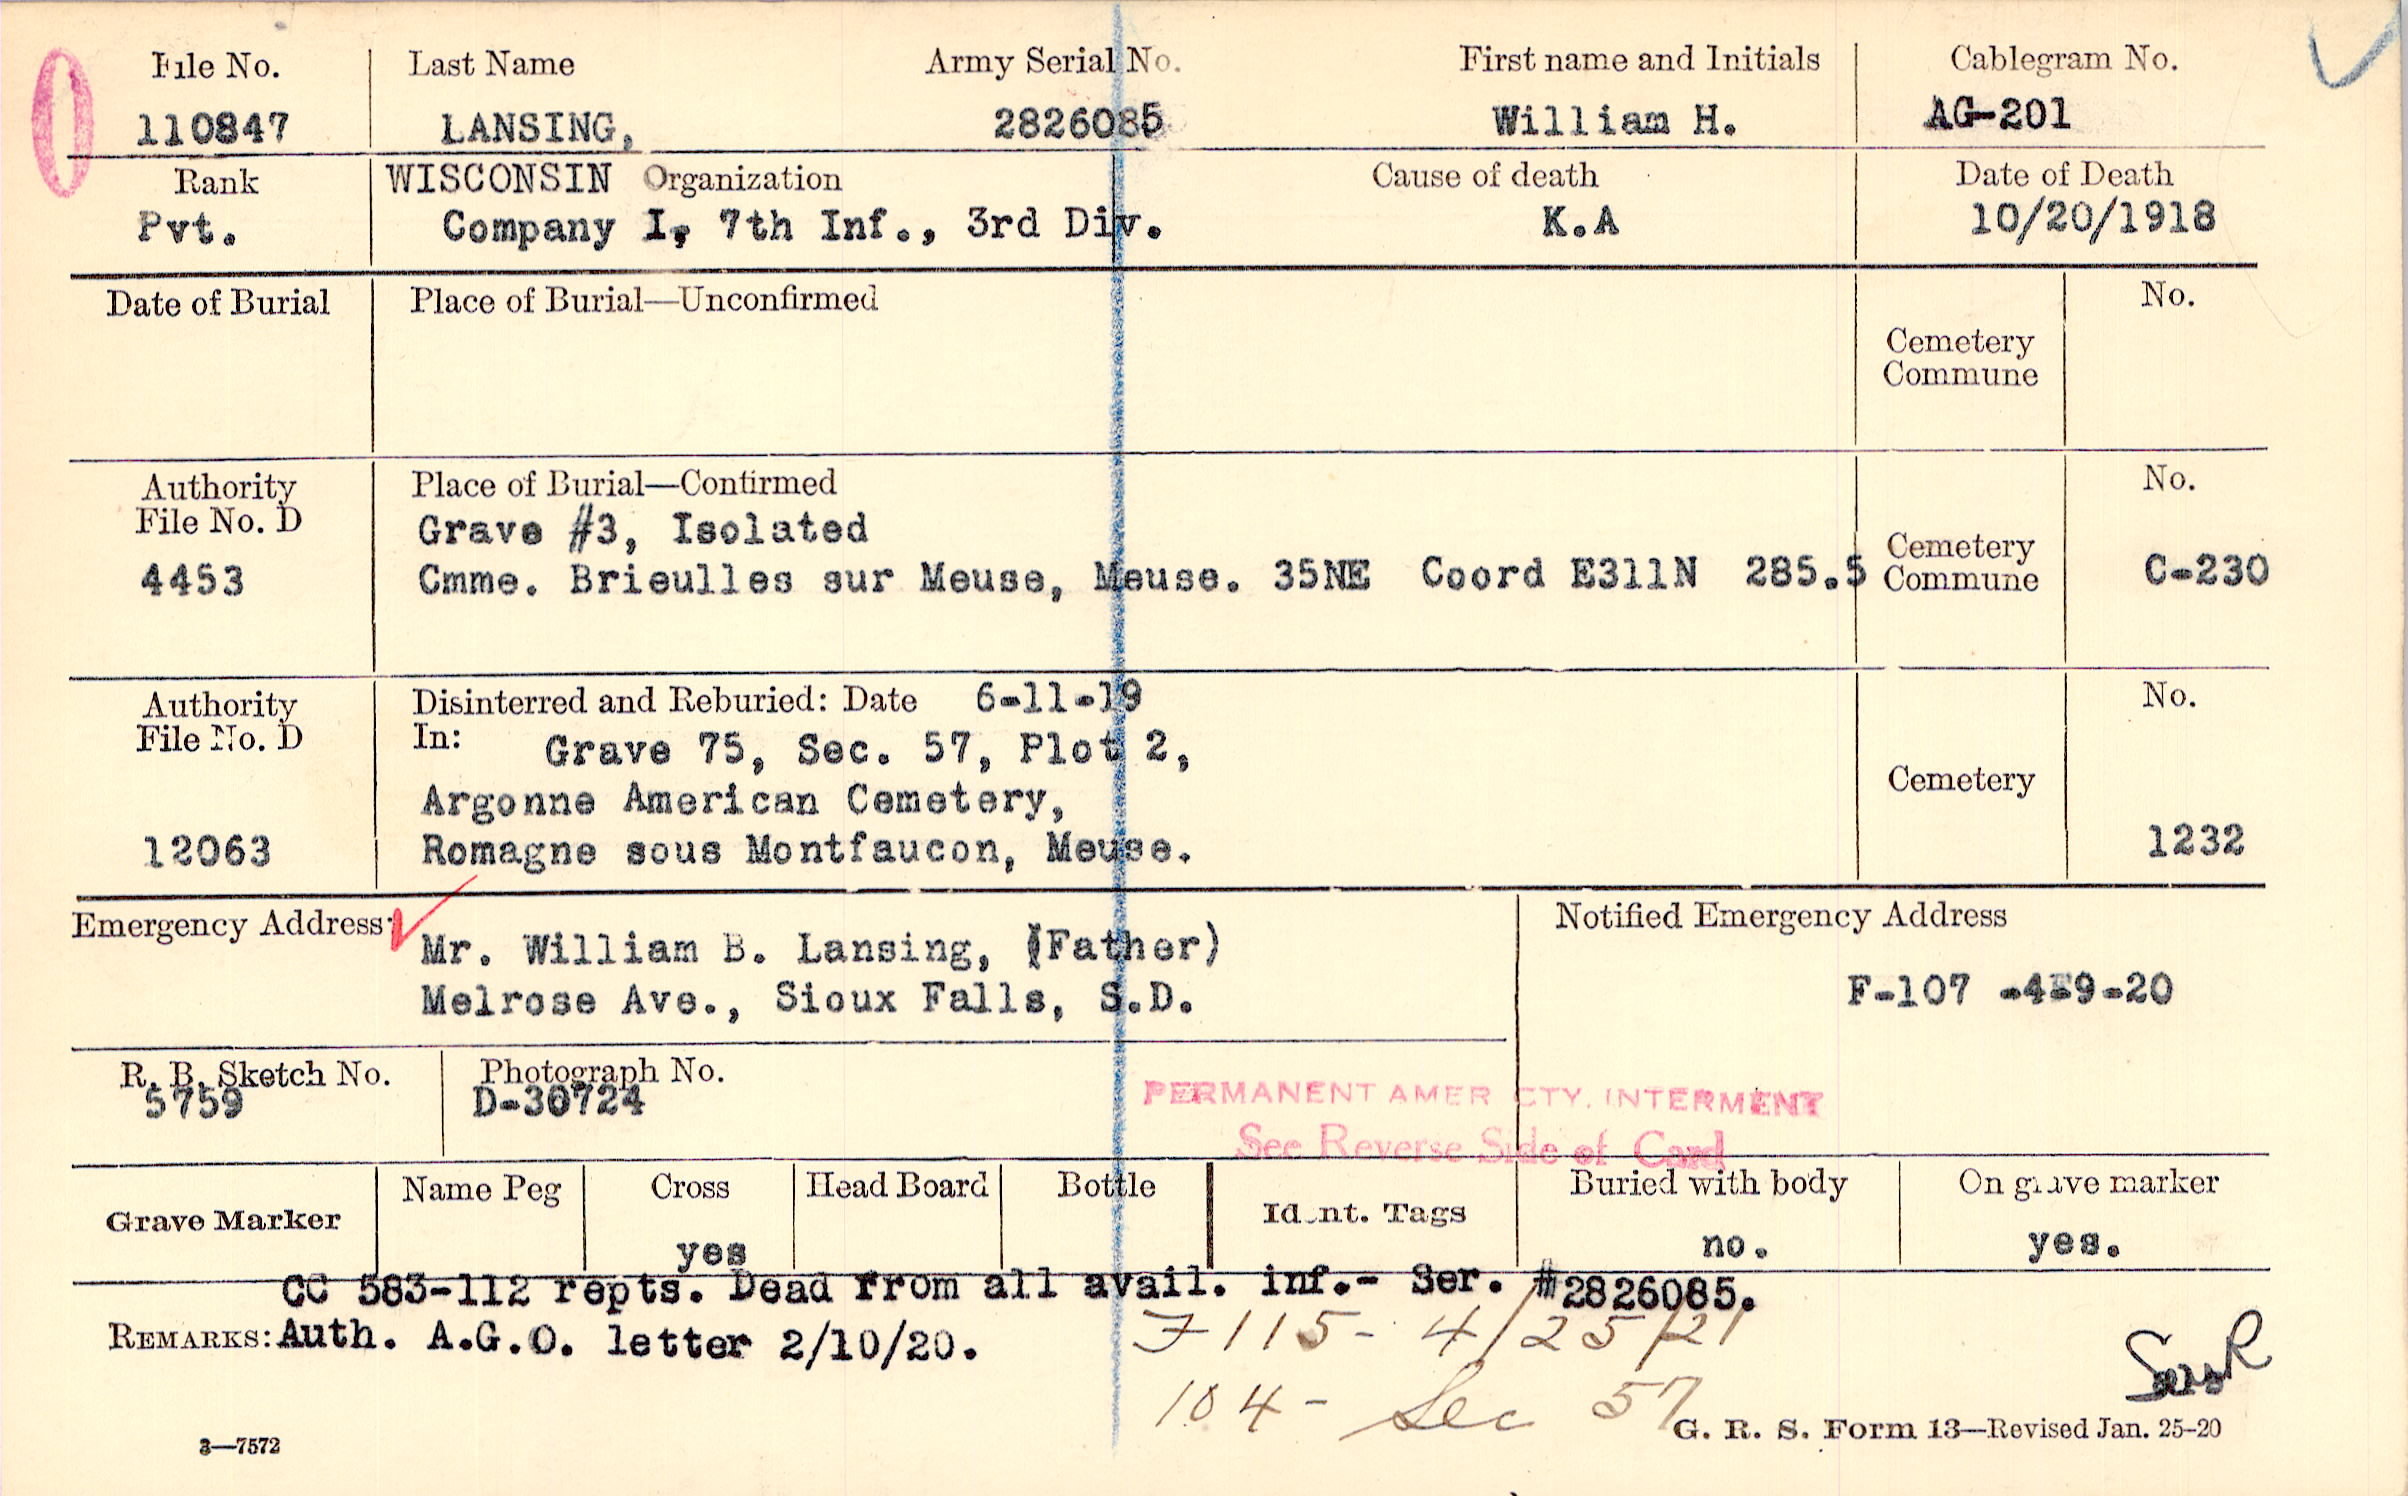 File No. Last Name Army Serial No. First name and Initials Cablegram No.
110847 LANSING, 2826085 William H. AG-201
Rank WISCONSIN Organization Cause of death Date of Death
Pvt. Company I, 7th Inf., 3rd Div. K.A 10/20/1918
Date of Burial Place of Burial—Unconfirmed No.
Cemetery
Commune
Authority Place of Burial—Confirmed No.
File No. D Grave #3, Isolated
Cemetery
4453 Cmme. Brieulles sur Meuse, Meuse. 35NE Coord E311N 285.5 Commune C-230
Authority Disinterred and Reburied: Date 6-11-19 No.
File No. D In: Grave 75, Sec. 57, Plot 2,
Argonne American Cemetery, Cemetery
12063 Romagne sous Montfaucon, Meuse. 1232
Emergency Address: Notified Emergency Address
Mr. William B. Lansing, (Father)
Melrose Ave., Sioux Falls, S.D. F-107 -4-9-20
R. B. Sketch No. Photograph No.
5759 D-30724 PERMANENT AMER CTY. INTERMENT
See Reverse Side of Card
Grave Marker Name Peg Cross Head Board Bottle Ident. Tags Buried with body On grave marker
yes no. yes.
CC 583-112 repts. Dead from all avail. inf.- Ser. #2826085.
REMARKS: Auth. A.G.O. letter 2/10/20. F115- 4/25/21
104- Sec 57
3—7572 G. R. S. Form 13—Revised Jan. 25-20